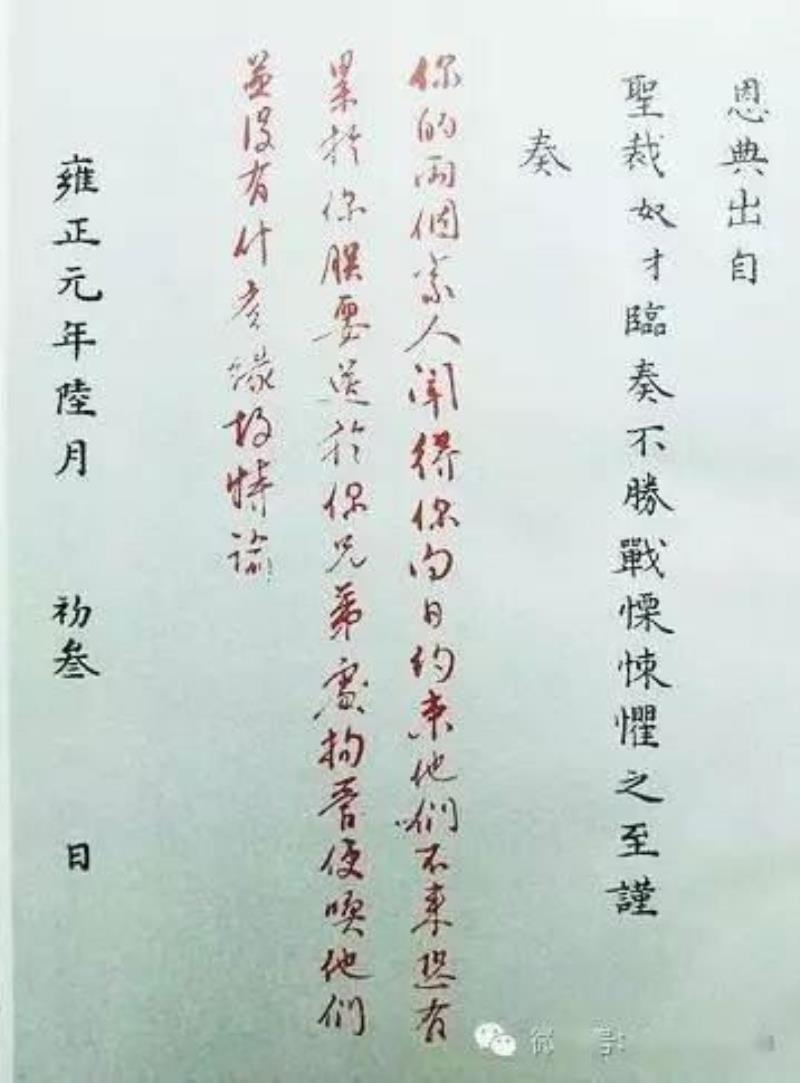 恩典出自
聖裁奴才臨奏不勝戰慄悚懼之至謹
奏
你的兩個家人聞得你向日約束他們不来恐有
累於你朕要送於你兄弟處拘管使喚他們
並沒有什麼緣故特諭
雍正元年陸月 初叁 日